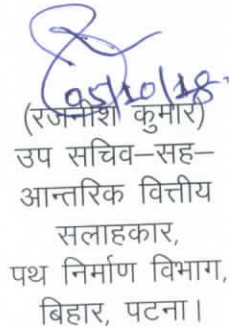 05/10/18
(रजनीश कुमार)
उप सचिव–सह–
आन्तरिक वित्तीय
सलाहकार,
पथ निर्माण विभाग,
बिहार, पटना।